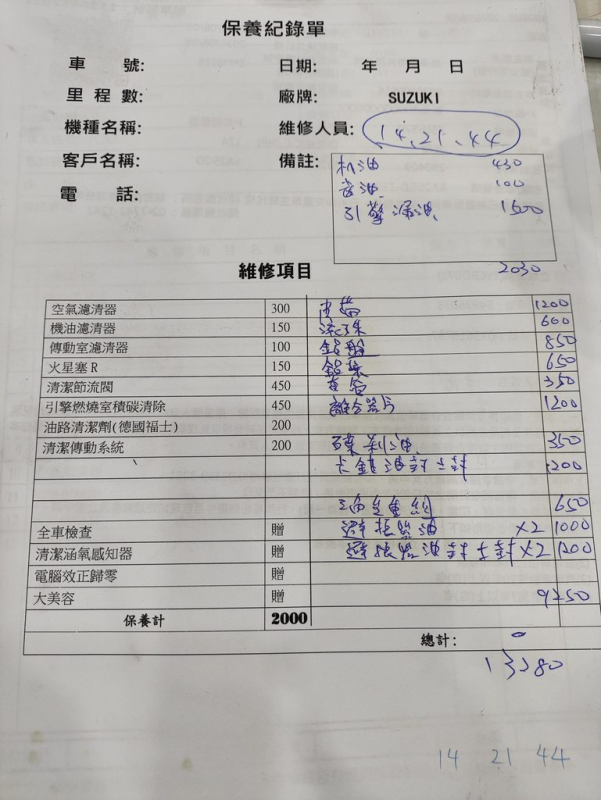 保養紀錄單
車 號: 日期: 年 月 日
里程數: 廠牌: SUZUKI
機種名稱: 維修人員: 14.21.44
客戶名稱: 備註: 机油 430
電 話: 齒油 100
引擎漏油 1500
2030
維修項目
空氣濾清器 300 皮帶 1200
機油濾清器 150 滾珠 600
傳動室濾清器 100 鋁盤 850
火星塞R 150 650
清潔節流閥 450 350
引擎燃燒室積碳清除 450 離合器片 1200
油路清潔劑(德國福士) 200
清潔傳動系統 200 碟剎油 350
卡鉗油封土封 200
650
全車檢查 贈 避振器油 X2 1000
清潔涵氧感知器 贈 避振器油封土封X2 1200
電腦效正歸零 贈
大美容 贈 9250
保養計 2000
總計:
13280
14 21 44